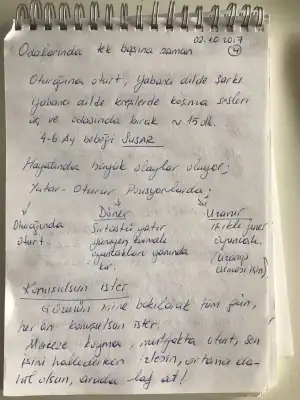 02.10.2017
4
Odalarında tek başına zaman
Oturağına oturt, yabancı dilde şarkı
yabancı dilde kreşlerde koşma sesleri
aç ve odasında bırak ~ 15 dk.
4-6 Ay bebeği SUSAR
Hayatında büyük olaylar oluyor;
Yatar - Oturur Pozisyonlarda;
Oturağında
oturt.
Döner
Sırtüstü yatır,
oyuncakları yanında
Uzanır
oyuncakla.
Konuşulsun ister
Gözünün içine bakılarak tüm gün,
her an konuşulsun ister.
Merkeze koyma, mutfakta oturt, sen
işini hallederken izlesin, ortama da-
hil olsun, arada laf at!